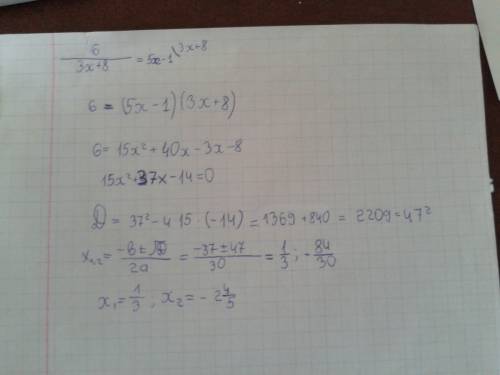 6/(3x+8) = 5x-1 \ 3x+8
6 = (5x-1)(3x+8)
6 = 15x² + 40x - 3x - 8
15x² + 37x - 14 = 0
D = 37² - 4·15·(-14) = 1369 + 840 = 2209 = 47²
x₁,₂ = (-b ± √D)/2a = (-37 ± 47)/30 = 1/3 ; -84/30
x₁ = 1/3, x₂ = - 2 4/5